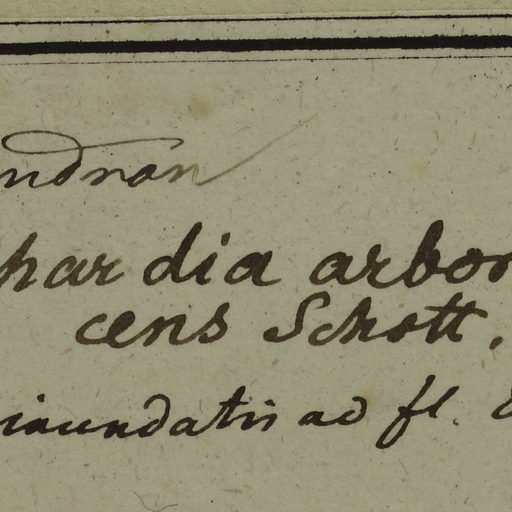 ndran
hardia arbor
cens Schott.
inundatis ad fl.